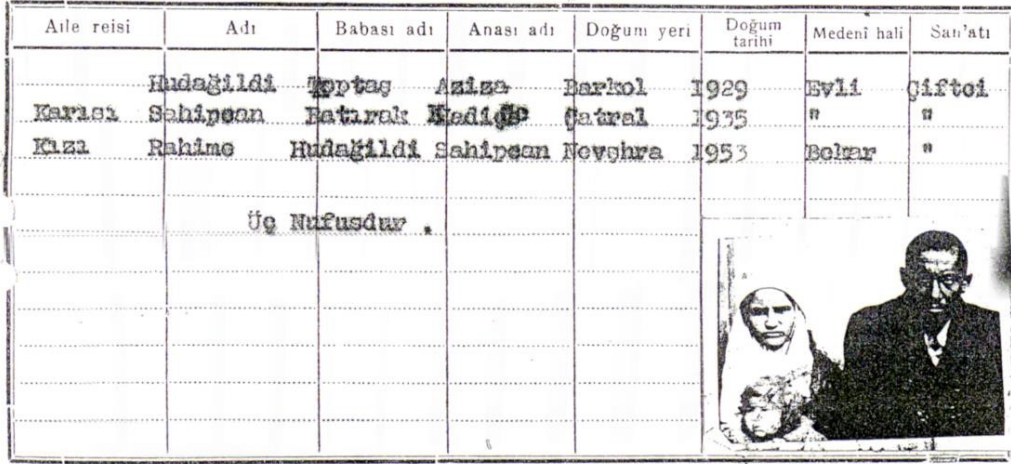 Aile reisi Adı Babası adı Anası adı Doğum yeri Doğum tarihi Medenî hali San'atı
Hudağildi Toptaş Aziza Barkol 1929 Evli Çiftci
Karısı Sahipcan Batırak Çatral 1935 " "
Kızı Rahime Hudağildi Sahipcan Novşhra 1953 Bekar "
Üç Nufusdur .